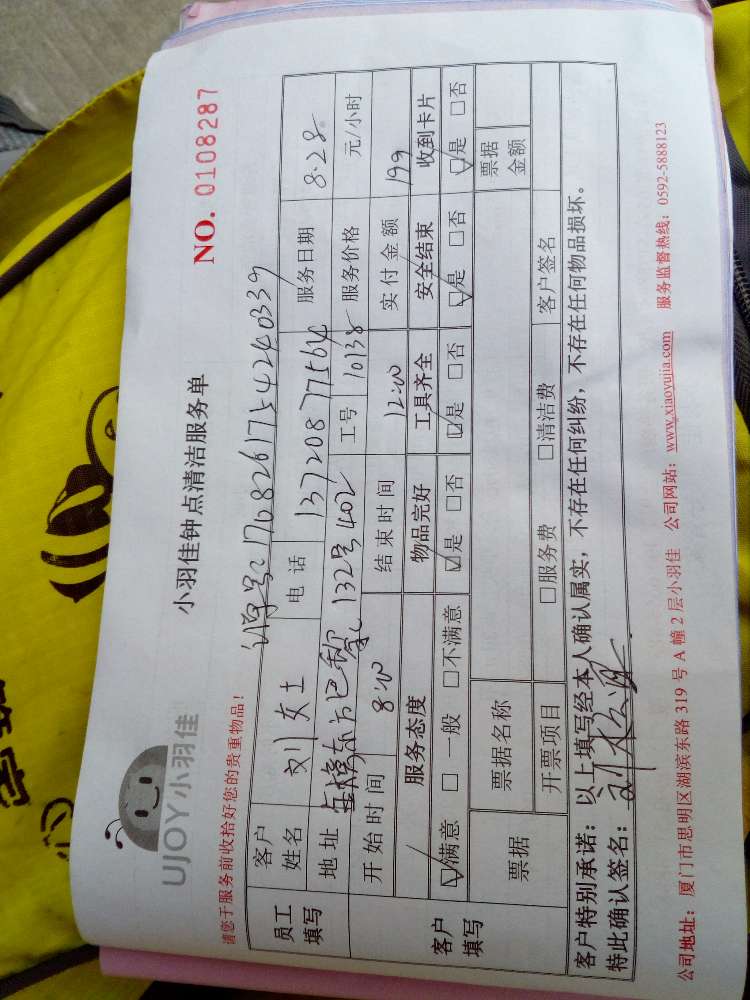 UJOY小羽佳
小羽佳钟点清洁服务单
NO. 0108287
请您于服务前收拾好您的贵重物品！
订单号:1708261754240339
员工填写
客户姓名 刘女士 电话 13720877564 服务日期 8.28
地址 东方巴黎 132号402 工号 10138 服务价格 元/小时
开始时间 8:00 结束时间 12:00 实付金额 199
客户填写
服务态度 物品完好 工具齐全 安全结束 收到卡片
☑满意 □一般 □不满意 ☑是 □否 ☑是 □否 ☑是 □否 ☑是 □否
票据 票据名称 票据金额
开票项目 □服务费 □清洁费 客户签名
客户特别承诺：以上填写经本人确认属实，不存在任何纠纷，不存在任何物品损坏。
特此确认签名：刘
公司地址：厦门市思明区湖滨东路 319 号 A 幢 2 层小羽佳 公司网站：www.xiaoyujia.com 服务监督热线：0592-5888123